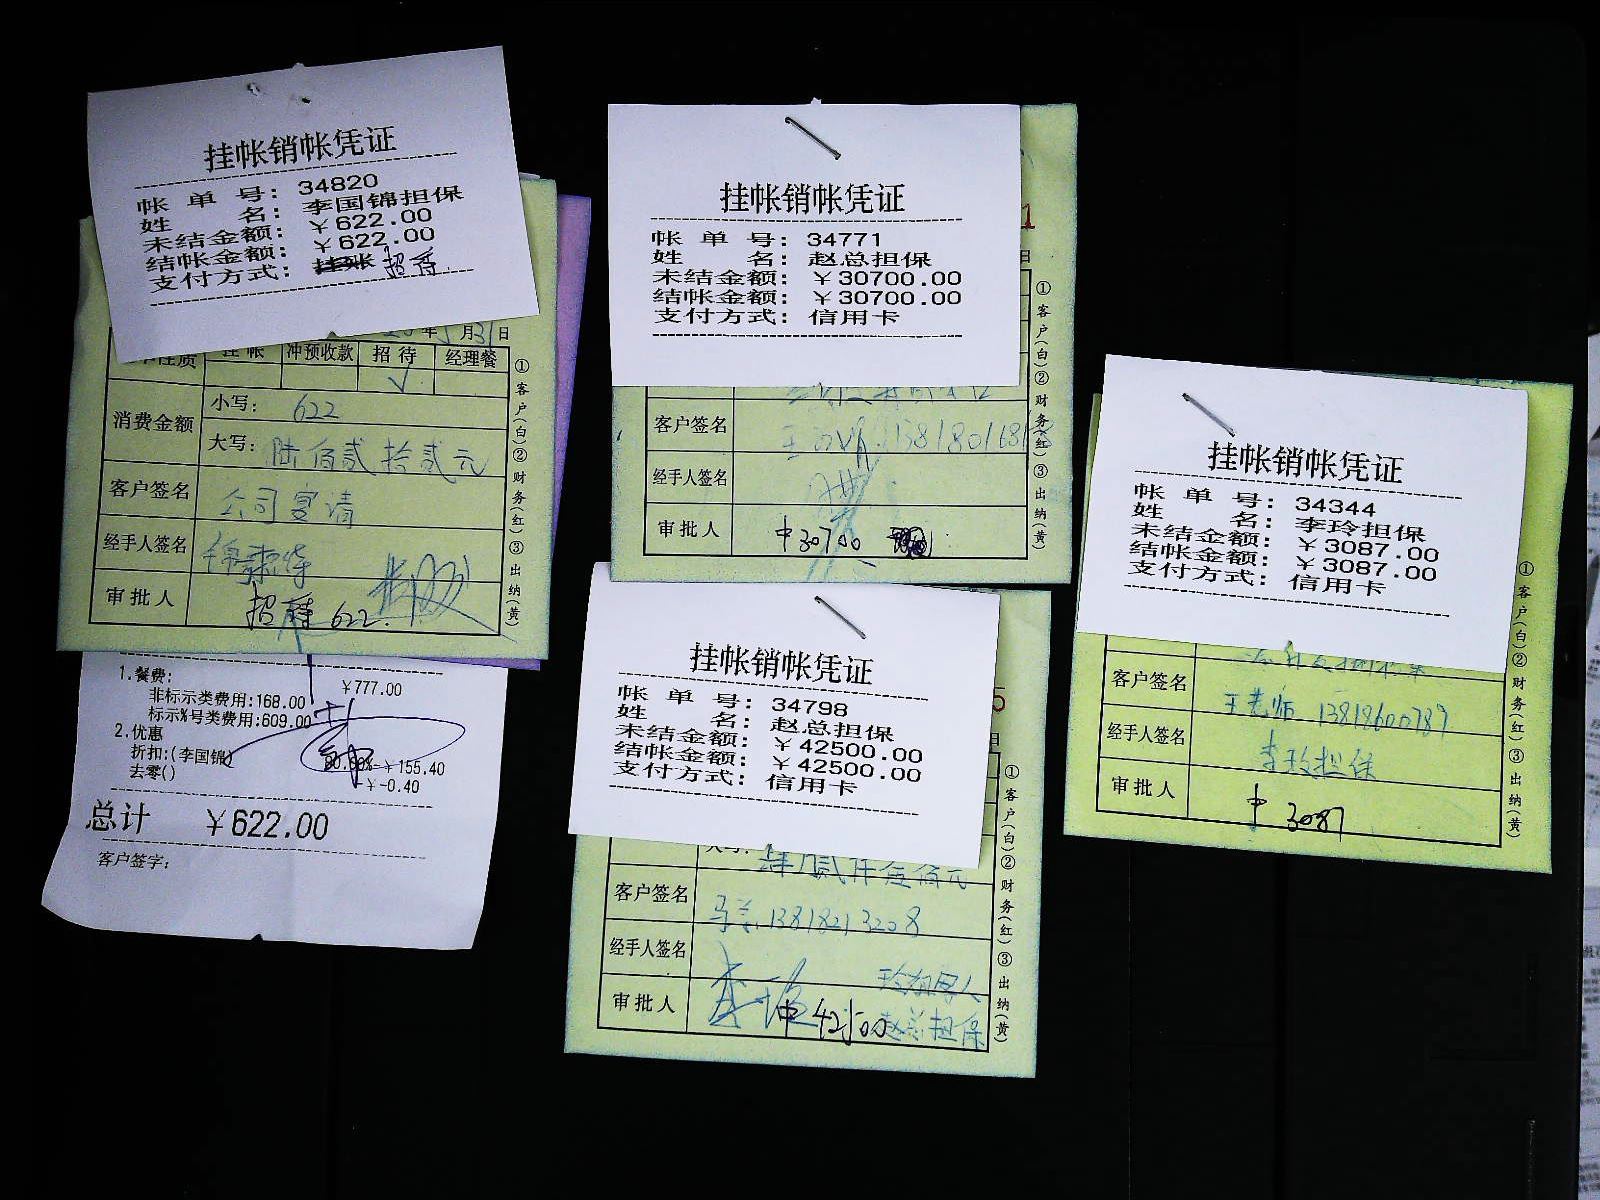 挂帐销帐凭证
帐单号: 34820
姓名: 李国锦担保
未结金额: ￥622.00
结帐金额: ￥622.00
支付方式: 挂账 招待
年 月31日
挂帐 冲预收款 招待 经理餐
√
消费金额 小写: 622
大写: 陆佰贰拾贰元
客户签名 公司宴请
经手人签名
审批人 招待 622.
①客户(白)②财务(红)③出纳(黄)
1.餐费: ￥777.00
非标示类费用:168.00
标示%号类费用:609.00
2.优惠
折扣:(李国锦) ￥-155.40
去零() ￥-0.40
总计 ￥622.00
客户签字:
挂帐销帐凭证
帐单号: 34771
姓名: 赵总担保
未结金额: ￥30700.00
结帐金额: ￥30700.00
支付方式: 信用卡
1
日
客户签名
经手人签名
审批人 中30700
①客户(白)②财务(红)③出纳(黄)
挂帐销帐凭证
帐单号: 34798
姓名: 赵总担保
未结金额: ￥42500.00
结帐金额: ￥42500.00
支付方式: 信用卡
5
日
大写: 肆万贰仟伍佰元
客户签名 13818213208
经手人签名
审批人 中42500 赵总担保
①客户(白)②财务(红)③出纳(黄)
挂帐销帐凭证
帐单号: 34344
姓名: 李玲担保
未结金额: ￥3087.00
结帐金额: ￥3087.00
支付方式: 信用卡
客户签名 王老师 13818600787
经手人签名 李玲担保
审批人 中 3087
①客户(白)②财务(红)③出纳(黄)